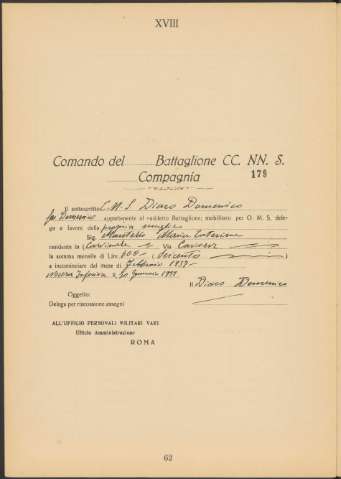 XVIII
Comando del Battaglione CC. NN. S.
Compagnia 179
Il sottoscritto C. M. S. Diaco Domenico
fu Domenico appartenente al suddetto Battaglione; mobilitato per O. M. S. delega a favore della propria moglie
Sig. Maria Caterina
residente in Cardinale Via Cavour
la somma mensile di Lire 600 (Seicento)
a incominciare dal mese di Febbraio 1937
Inferiore 20 Gennaio 1937
Il Diaco Domenico
Oggetto:
Delega per riscossione assegni
ALL'UFFICIO PERSONALI MILITARI VARI
Ufficio Amministrazione
ROMA
62